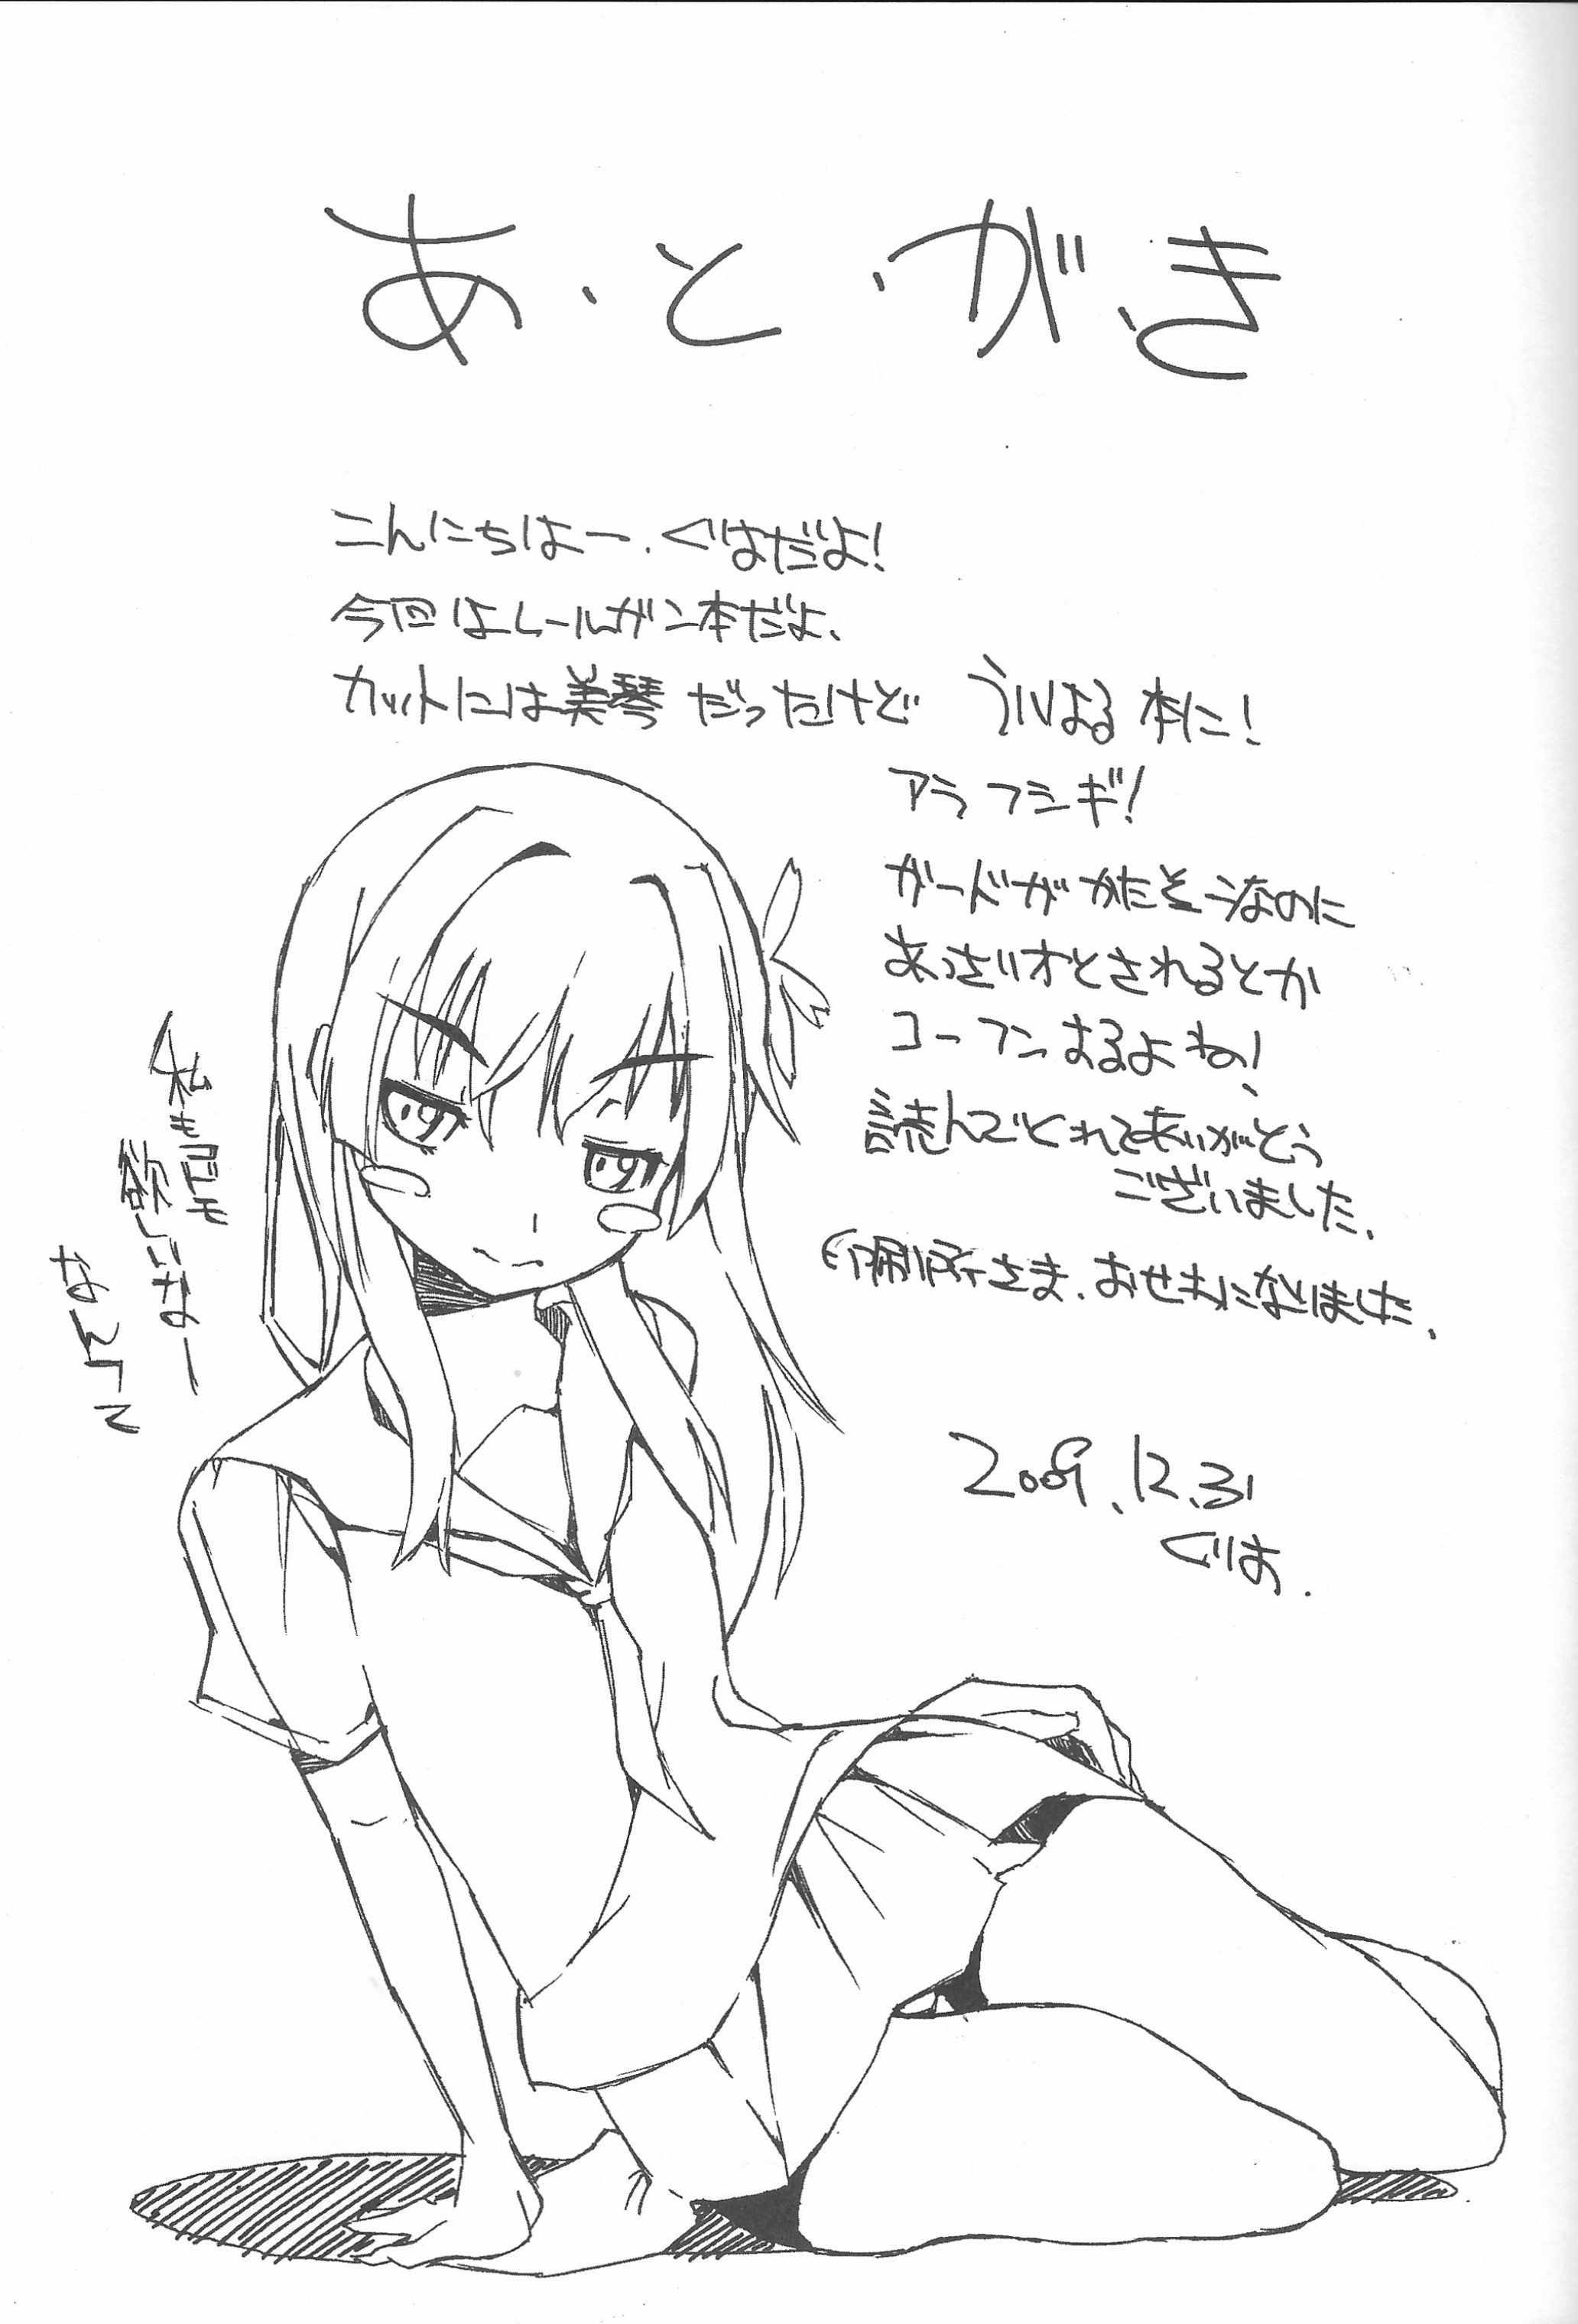 あ・と・が・き
こんにちはー、ぐりはだよ!
今回はレールガン本だよ、
カットには美琴だったけど ういはる本に!
アラフシギ!
ガードがかたそうなのに
あっさりオとされるとか
コーフンするよね!
読んでくれてありがとう
ございました、
印刷所さま、おせわになりました、
2009.12.31
ぐりは.
私もコドモ
欲しいなー
なんつて